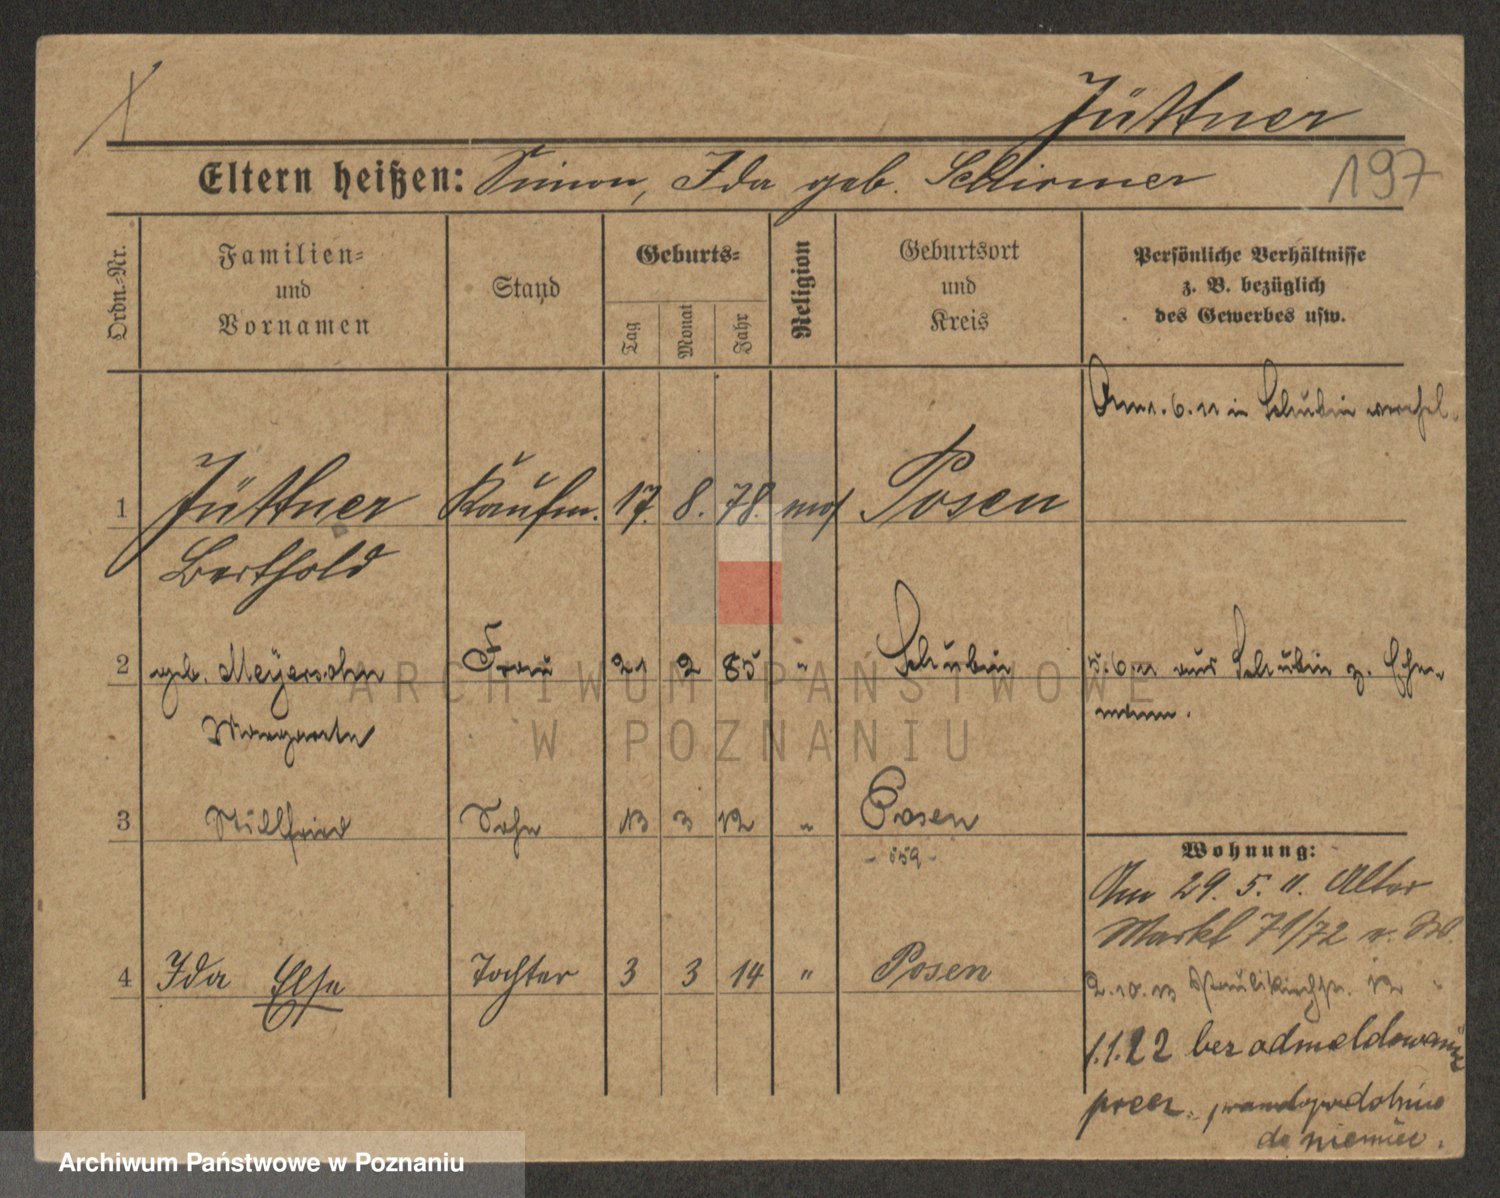 Jüttner
Eltern heißen: Simon, Ida geb. Schirmer
197
Ordn.-Nr.
Familien-
und
Vornamen
Stand
Geburts-
Tag
Monat
Jahr
Religion
Geburtsort
und
Kreis
Persönliche Verhältnisse
z. B. bezüglich
des Gewerbes usw.
6. 11 in Schubin
1 Jüttner Kaufm. 17. 8. 78. mos Posen
Berthold
2 geb. Meyersohn Frau 21 2 85 " Schubin
5. 6. 11 aus Schubin z. Ehe-
mann.
Margarete
3 Stillfried Sohn 13 3 12 " Posen
- 559 -
Wohnung:
Am 29. 5. 11. Alter
Markt 71/72 v. W.
4 Ida Else Tochter 3 3 14 " Posen
2. 10. 13 Paulikirchstr. 12 "
1.1.22 bez odmeldowania
prawdopodobnie
do niemiec.
ARCHIWUM PAŃSTWOWE
W POZNANIU
Archiwum Państwowe w Poznaniu